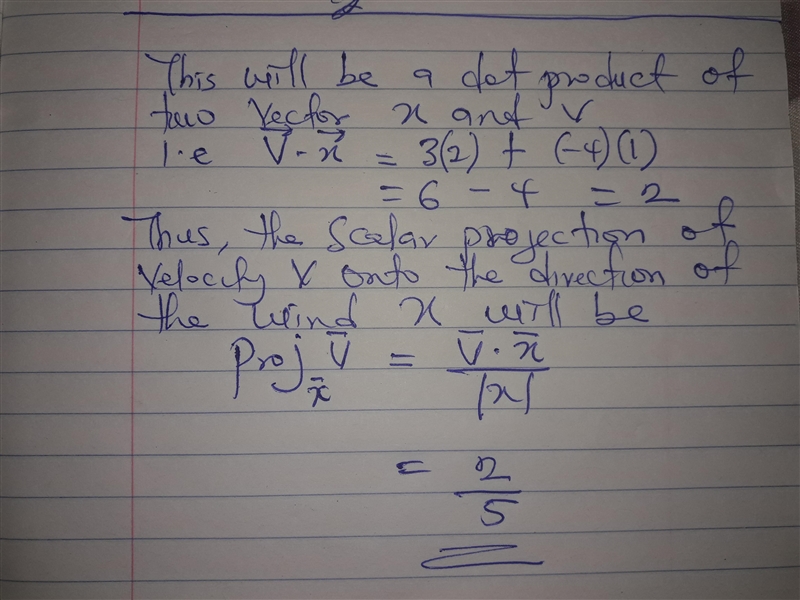 This will be a dot product of
two vector x and v
i.e V⃗ · x⃗ = 3(2) + (-4)(1)
= 6 - 4 = 2
Thus, the Scalar projection of
velocity V onto the direction of
the wind x will be
Proj_x̄ V̄ = V̄ · x̄ / |x|
= 2 / 5